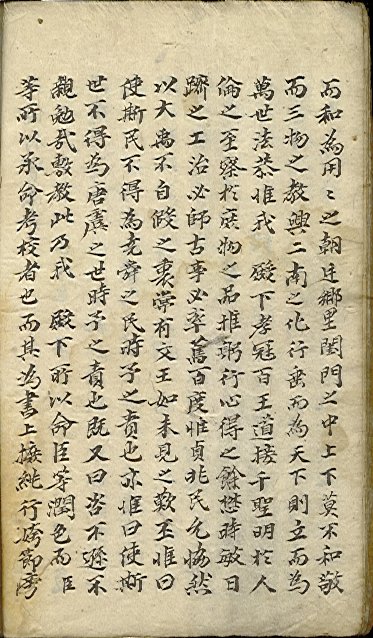 而和為用〻之朝廷鄉里閨門之中上下莫不和敬
而三物之教興二南之化行垂而為天下則立而為
萬世法恭惟我 殿下孝冠百王道接千聖明於人
倫之至察於庶物之品推躬行心得之餘懋時敏日
躋之工治必師古事必率舊百度惟貞兆民允悔然
以大禹不自假之衷常有文王如未見之歎至惟曰
使斯民不得為堯舜之民時予之責也亦惟曰使斯
世不得為唐虞之世時予之責也既又曰咨不遜不
親勉哉敷教此乃我 殿下所以命臣等潤色而臣
等所以承命考校者也而其為書上摭 行 節